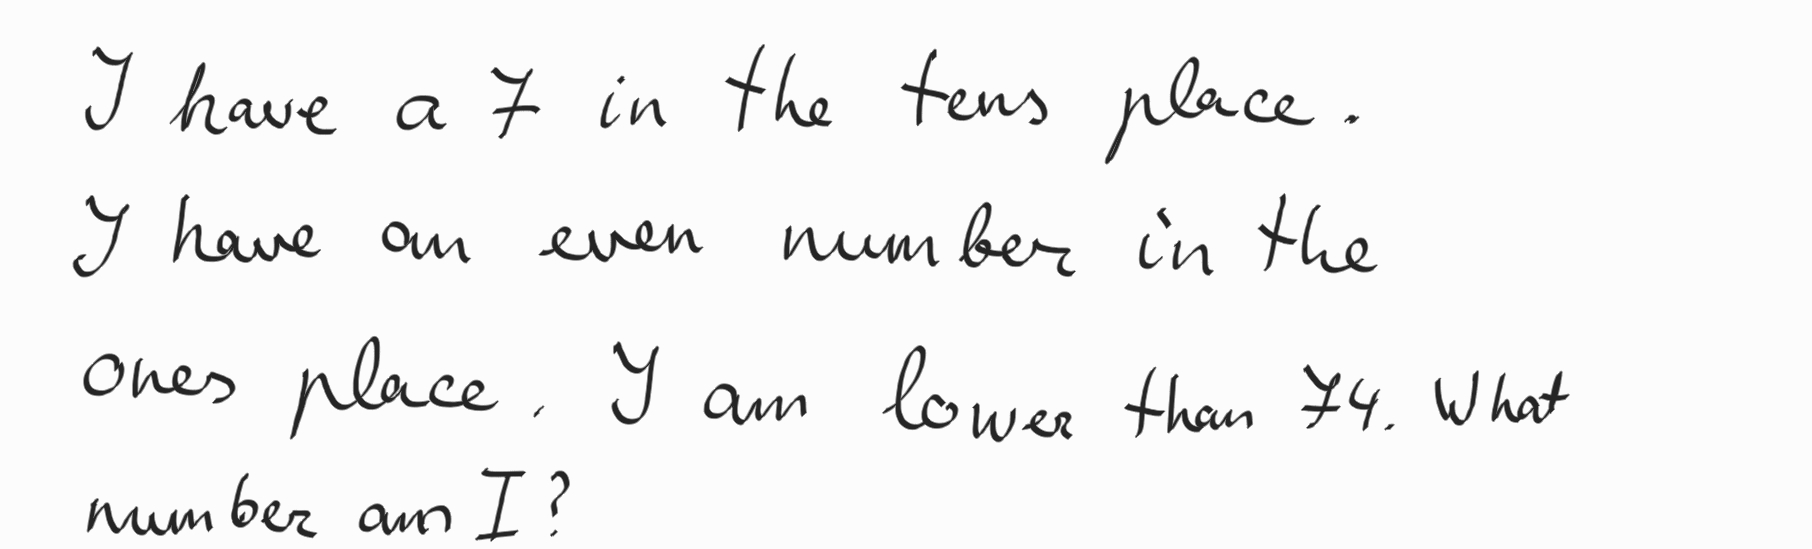 I have a 7 in the tens place.
I have an even number in the
ones place. I am lower than 74. What
number am I?